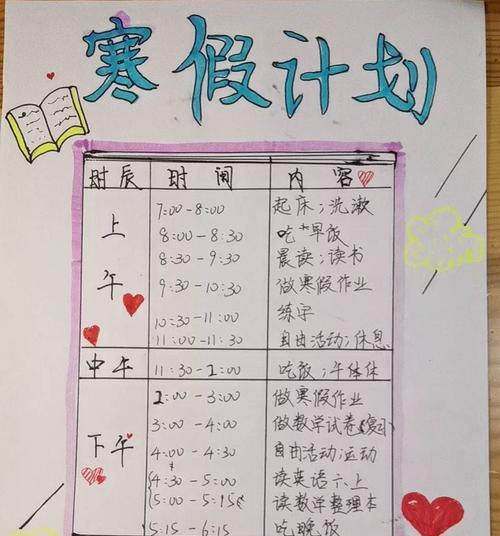 寒假计划
时辰 时间 内容
上午
7:00-8:00 起床;洗漱
8:00-8:30 吃早饭
8:30-9:30 晨读;读书
9:30-10:30 做寒假作业
10:30-11:00 练字
11:00-11:30 自由活动;休息
中午 11:30-2:00 吃饭;午体休
下午
2:00-3:00 做寒假作业
3:00-4:00 做数学试卷(复习)
4:00-4:30 自由活动;运动
4:30-5:00 读英语六上
5:00-5:15 读数学整理本
5:15-6:15 吃晚饭